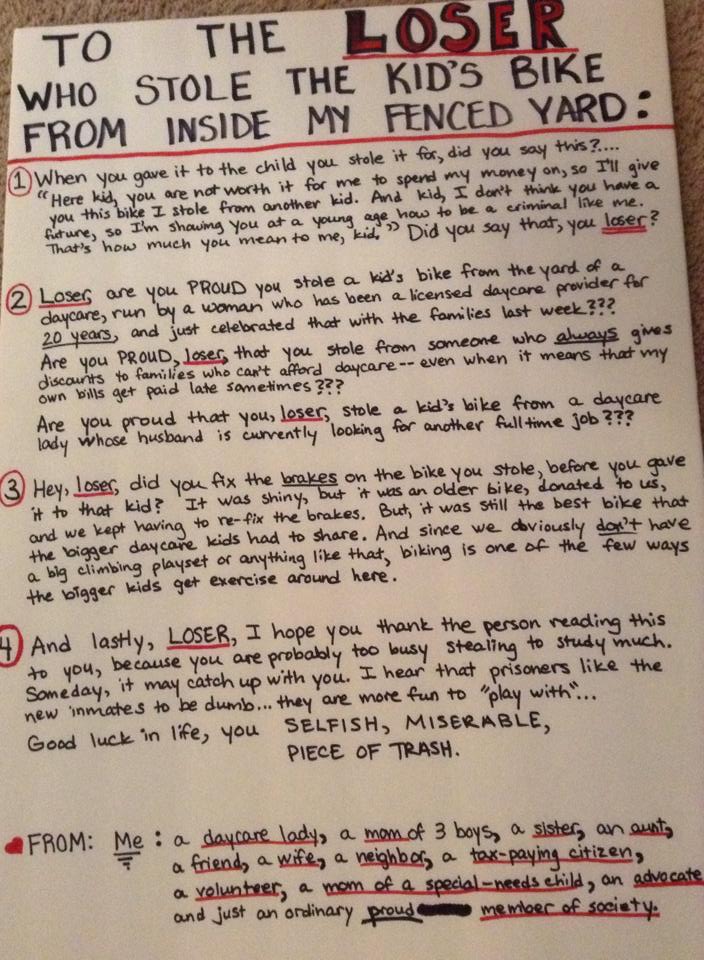 TO THE LOSER
WHO STOLE THE KID'S BIKE
FROM INSIDE MY FENCED YARD:
1 When you gave it to the child you stole it for, did you say this?....
"Here kid, you are not worth it for me to spend my money on, so I'll give
you this bike I stole from another kid. And kid, I don't think you have a
future, so I'm showing you at a young age how to be a criminal like me.
That's how much you mean to me, kid." Did you say that, you loser?
2 Loser, are you PROUD you stole a kid's bike from the yard of a
daycare, run by a woman who has been a licensed daycare provider for
20 years, and just celebrated that with the families last week???
Are you PROUD, loser, that you stole from someone who always gives
discounts to families who can't afford daycare -- even when it means that my
own bills get paid late sometimes???
Are you proud that you, loser, stole a kid's bike from a daycare
lady whose husband is currently looking for another full time job???
3 Hey, loser, did you fix the brakes on the bike you stole, before you gave
it to that kid? It was shiny, but it was an older bike, donated to us,
and we kept having to re-fix the brakes. But, it was still the best bike that
the bigger daycare kids had to share. And since we obviously don't have
a big climbing playset or anything like that, biking is one of the few ways
the bigger kids get exercise around here.
4 And lastly, LOSER, I hope you thank the person reading this
to you, because you are probably too busy stealing to study much.
Someday, it may catch up with you. I hear that prisoners like the
new inmates to be dumb... they are more fun to "play with"...
Good luck in life, you SELFISH, MISERABLE,
PIECE OF TRASH.
FROM: Me: a daycare lady, a mom of 3 boys, a sister, an aunt,
a friend, a wife, a neighbor, a tax-paying citizen,
a volunteer, a mom of a special-needs child, an advocate
and just an ordinary proud member of society.